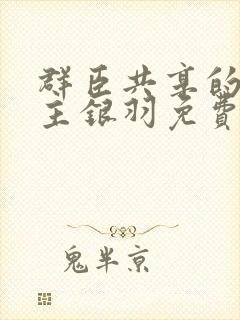 群臣共享的
主银羽免费
鬼半京